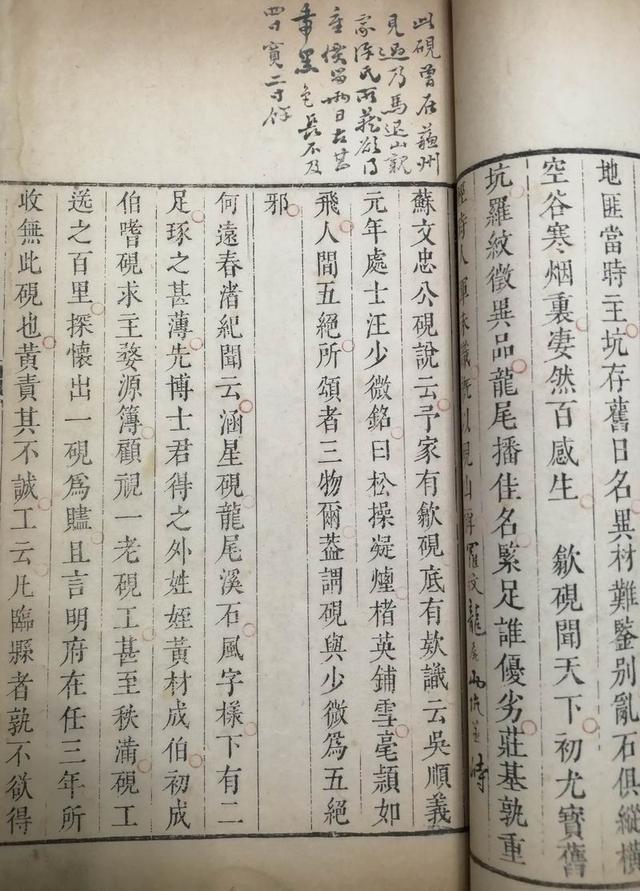 地匪當時主坑存舊日名異材難鑒别亂石俱縱横
空谷寒烟裏凄然百感生　歙硯聞天下初尤寶舊
坑羅紋徵異品龍尾播佳名緊足誰優劣莊基孰重
此硯曾在蘇州
見過乃馬退山
家
日古
黑色長不及
四寸寬二寸
蘇文忠公硯說云予家有歙硯底有欵識云吳順義
元年處士汪少微銘曰松操凝煙楮英鋪雪毫穎如
飛人間五絶所頌者三物爾葢謂硯與少微爲五絶
邪
何遠春渚紀聞云涵星硯龍尾溪石風字樣下有二
足琢之甚薄先博士君得之外姓姪黃材成伯初成
伯嗜硯求主婺源簿顧視一老硯工甚至秩滿硯工
送之百里探懷出一硯爲贐且言明府在任三年所
收無此硯也黃責其不誠工云凡臨縣者孰不欲得